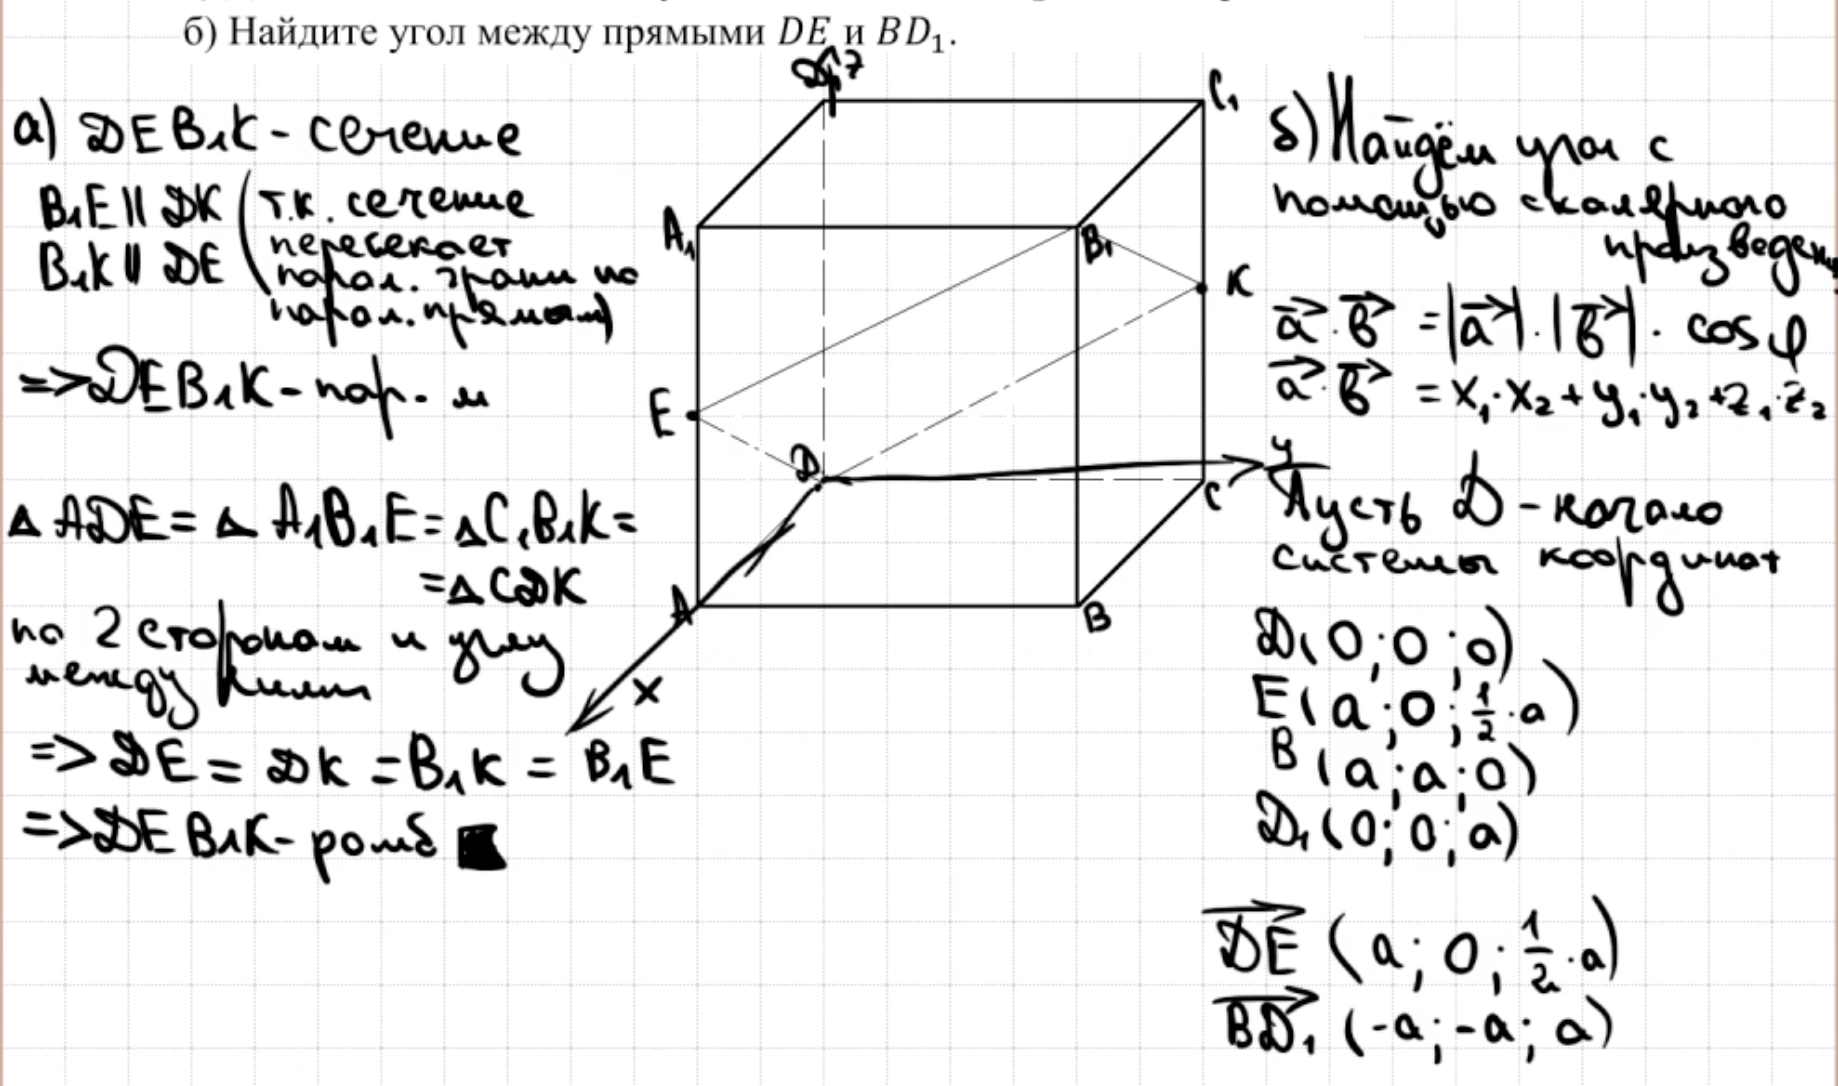 б) Найдите угол между прямыми DE и BD₁.
а) DEB₁K - сечение
B₁E || DK (т.к. сечение
пересекает
B₁K || DE парал. грани по
парал. прямым)
=> DEB₁K - пар-м
△ ADE = △ A₁B₁E = △ C₁B₁K =
= △ CDK
по 2 сторонам и углу
между ними
=> DE = DK = B₁K = B₁E
=> DEB₁K - ромб
D₁ z
C₁
A₁
B₁
K
E
D
y
C
A
B
x
б) Найдём угол с
помощью скалярного
произведения
a · b = |a| · |b| · cos φ
a · b = x₁·x₂ + y₁·y₂ + z₁·z₂
Пусть D - начало
системы координат
D(0; 0; 0)
E(a; 0; 1/2 · a)
B(a; a; 0)
D₁(0; 0; a)
DE (a; 0; 1/2 · a)
BD₁ (-a; -a; a)